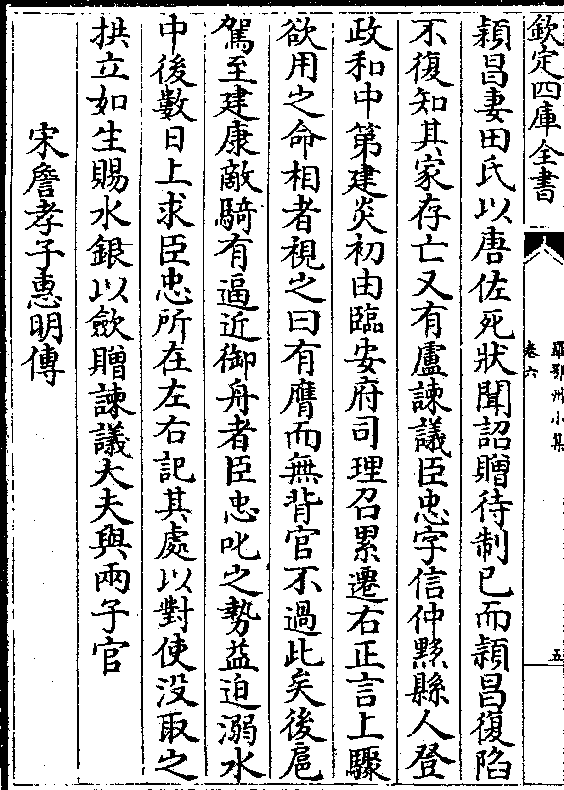 欽定四庫全書
羅鄂州小集
卷六
五
潁昌妻田氏以唐佐死狀聞詔贈待制已而潁昌復陷
不復知其家存亡又有盧諫議臣忠字信仲黟縣人登
政和中第建炎初由臨安府司理召累遷右正言上驟
欲用之命相者視之曰有膺而無背官不過此矣後扈
駕至建康敵騎有逼近御舟者臣忠叱之勢益迫溺水
中後數日上求臣忠所在左右記其處以對使没取之
拱立如生賜水銀以斂贈諫議大夫與兩子官
宋詹孝子惠明傳